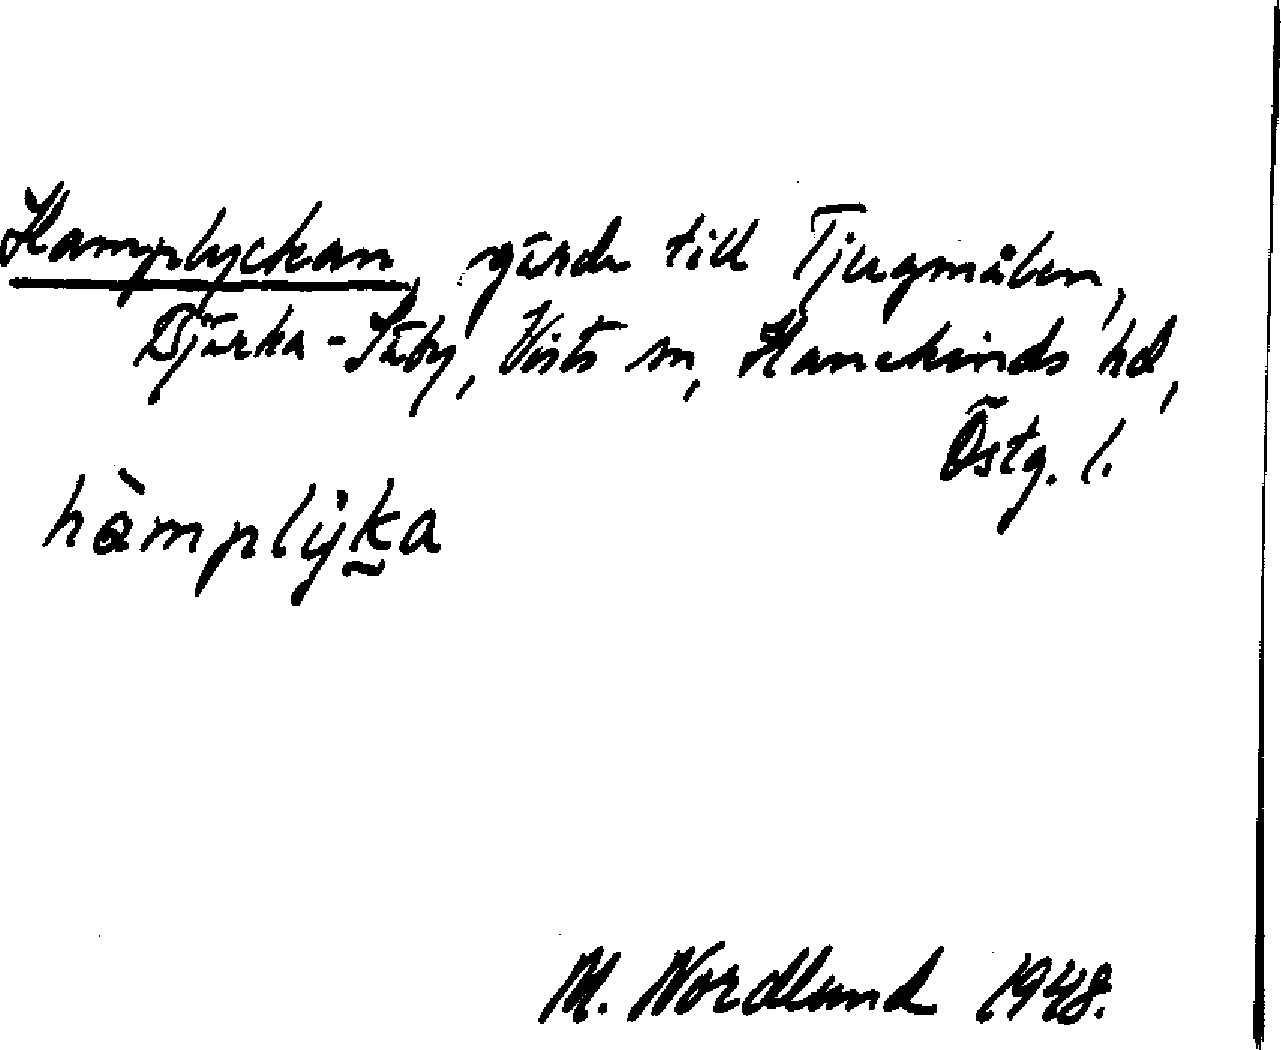 Hamplyckan, gärde till Tjugmålen,
Bjärka-Säby, Vists sn, Hanekinds hd,
Östg. l.
hàmplẏka
M. Nordlund 1948.